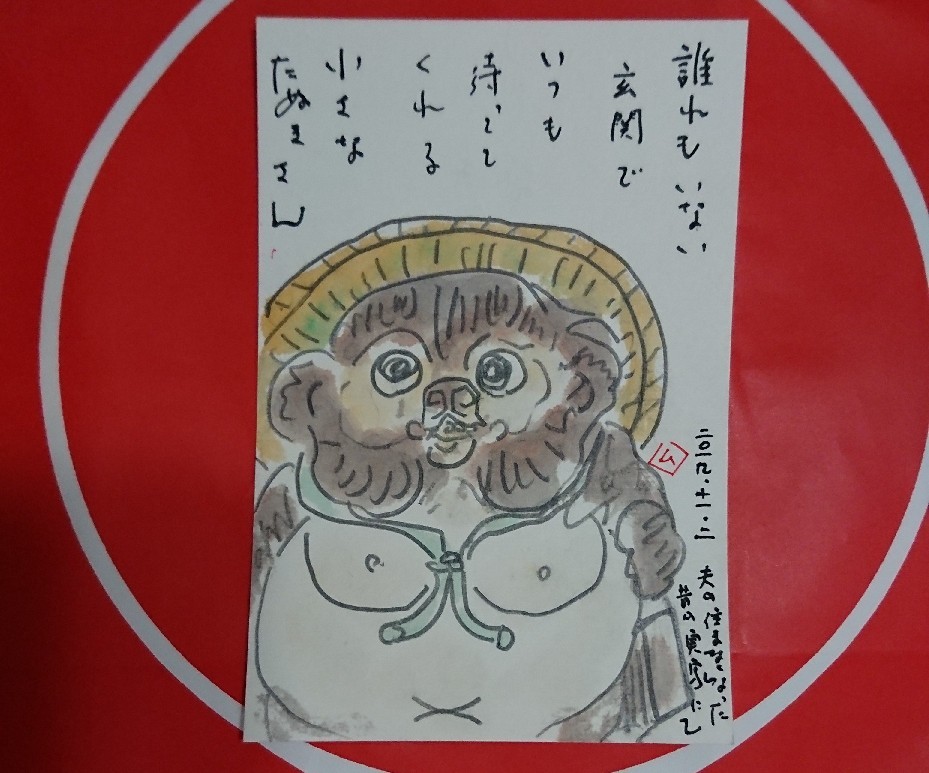 誰れもいない
玄関で
いつも
待ってて
くれる
小さな
たぬきさん
二〇一九.十一.二
夫の住まなくなった
昔の実家にて
ム